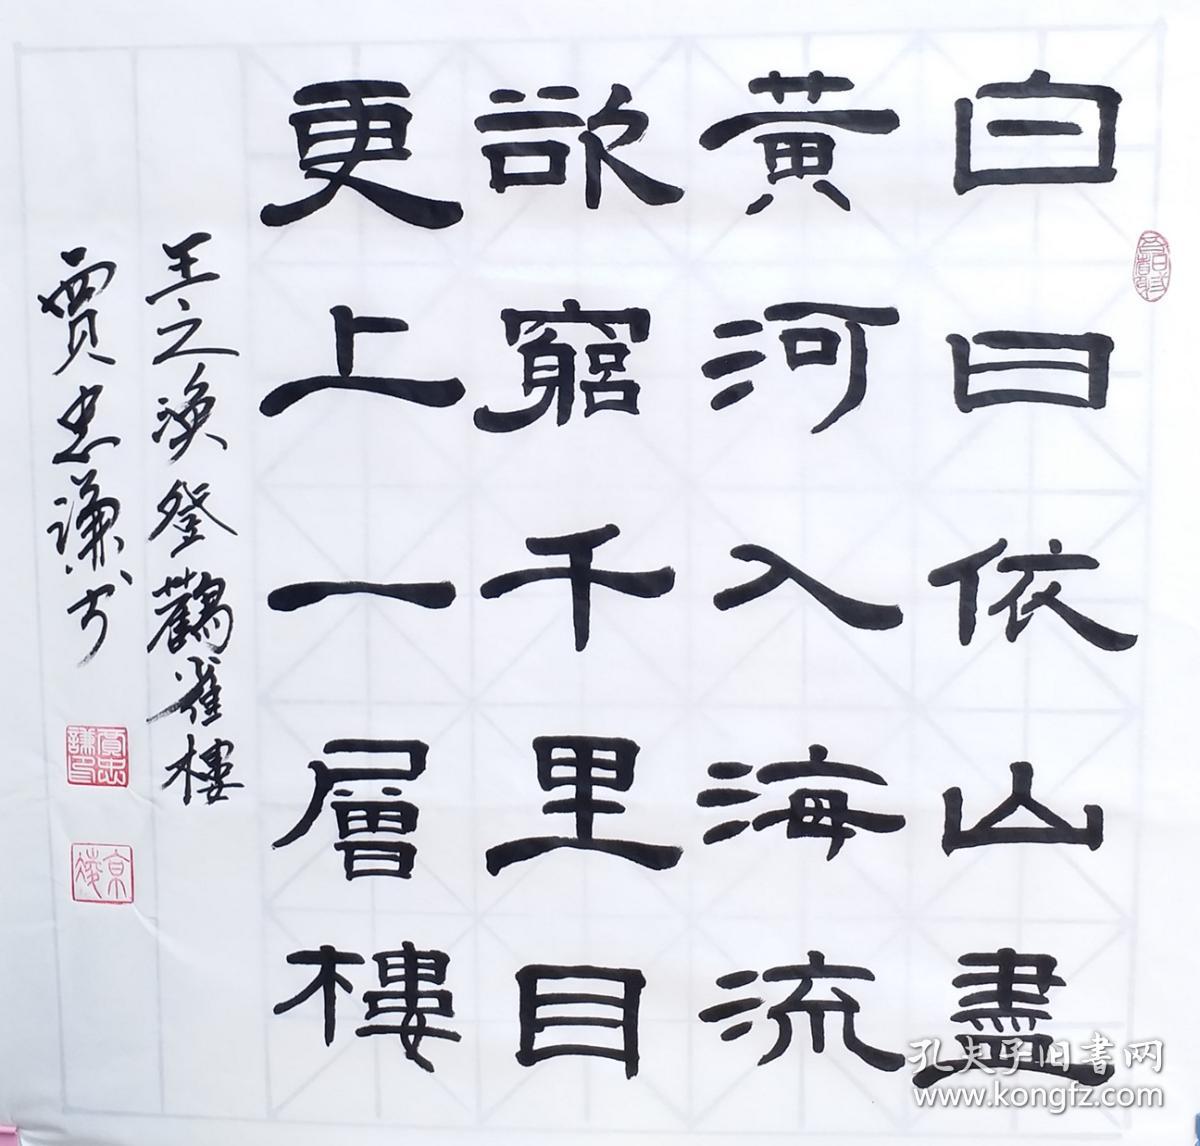 白日依山盡
黃河入海流
欲窮千里目
更上一層樓
王之渙登鸛雀樓
賈忠謙书
賈忠謙印
孔夫子旧書网
www.kongfz.com